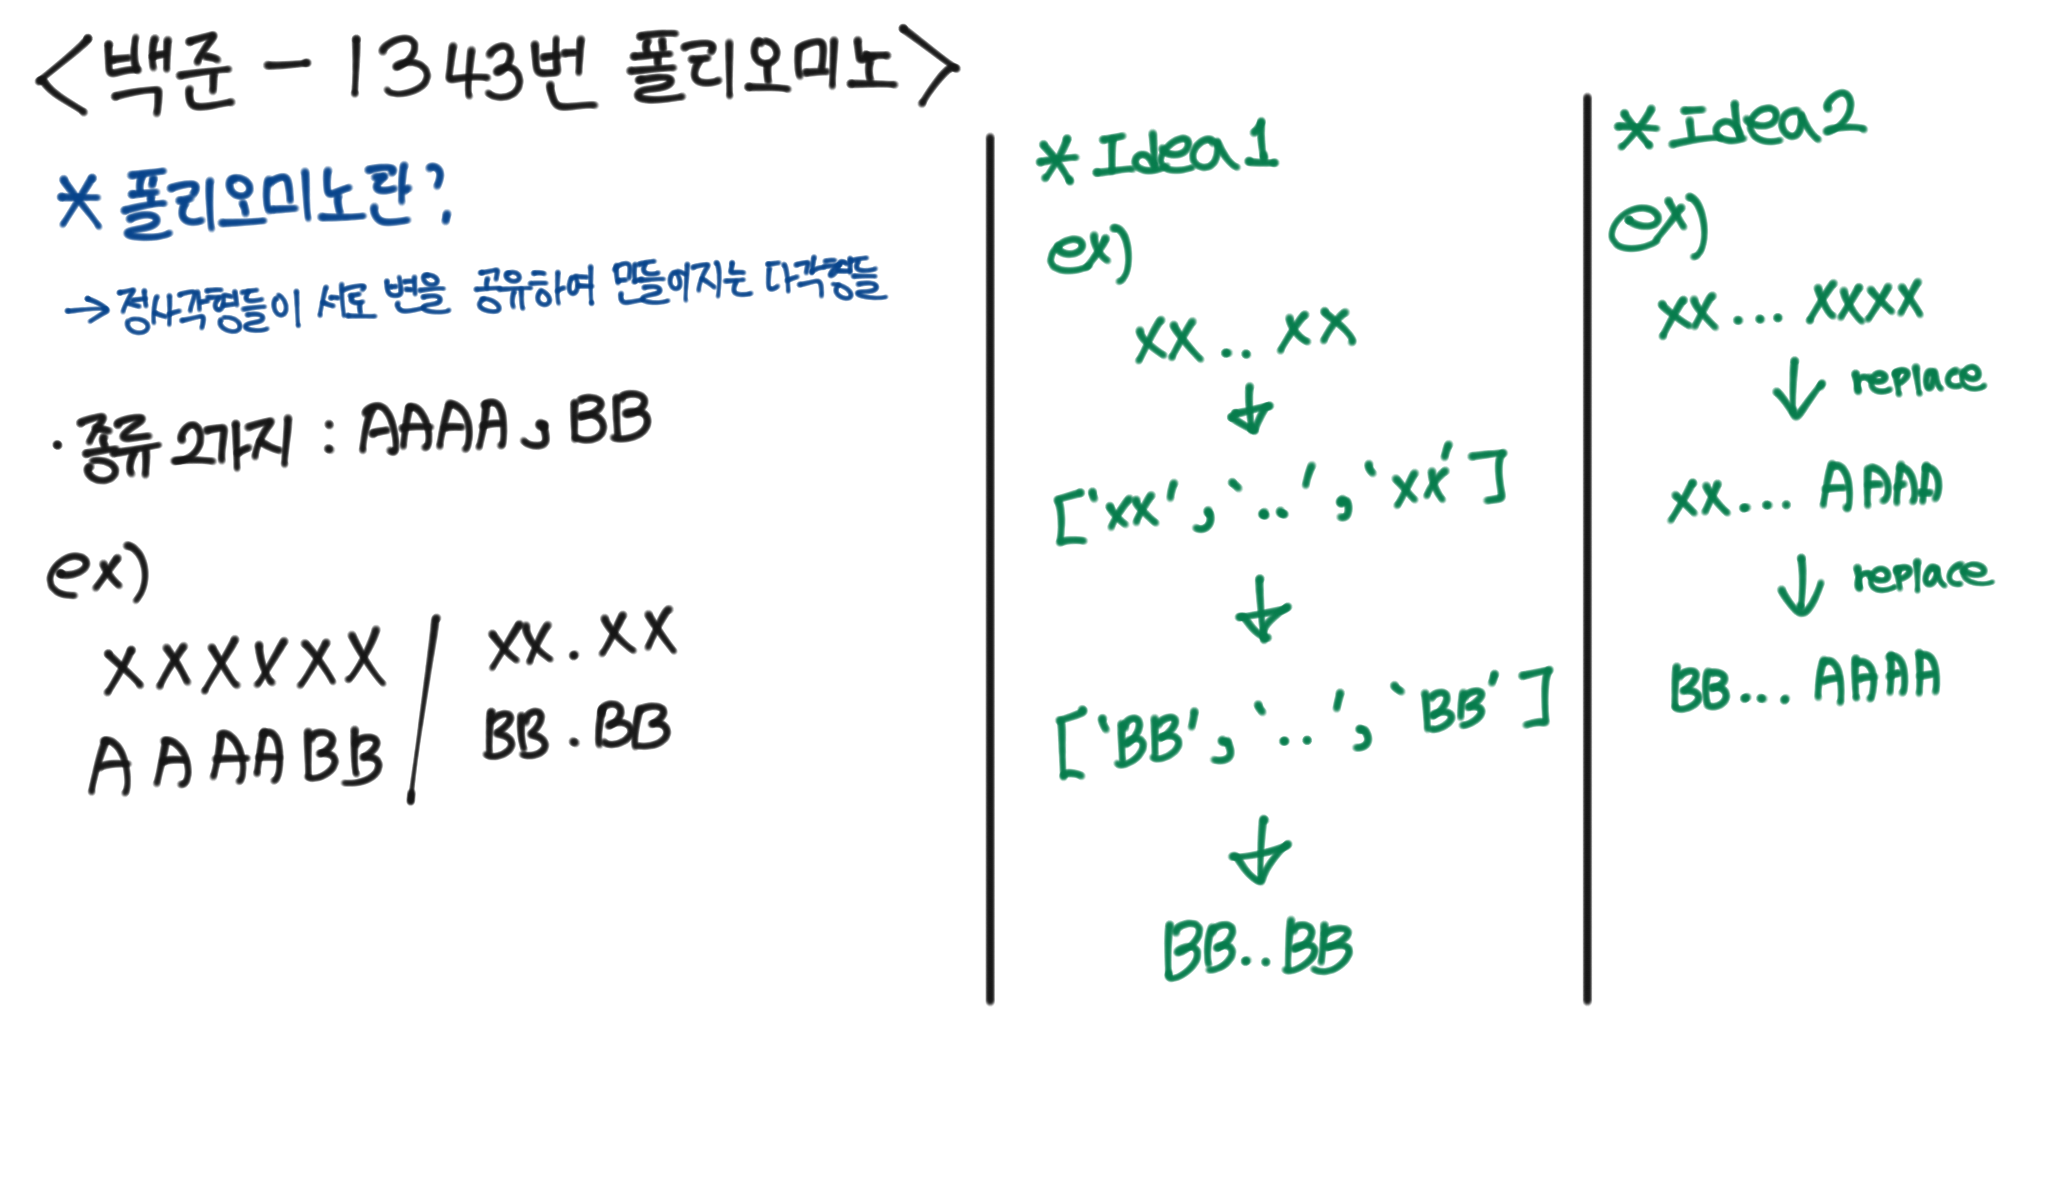 <백준 - 1343번 폴리오미노>
* 폴리오미노란?
→ 정사각형들이 서로 변을 공유하여 만들어지는 다각형들
· 종류 2가지 : AAAA, BB
ex)
XXXXXX / XX.XX
AAAABB BB.BB
* Idea1
ex)
XX..XX
↓
['XX', '..', 'XX']
↓
['BB', '..', 'BB']
↓
BB..BB
* Idea2
ex)
XX...XXXX
↓ replace
XX...AAAA
↓ replace
BB...AAAA